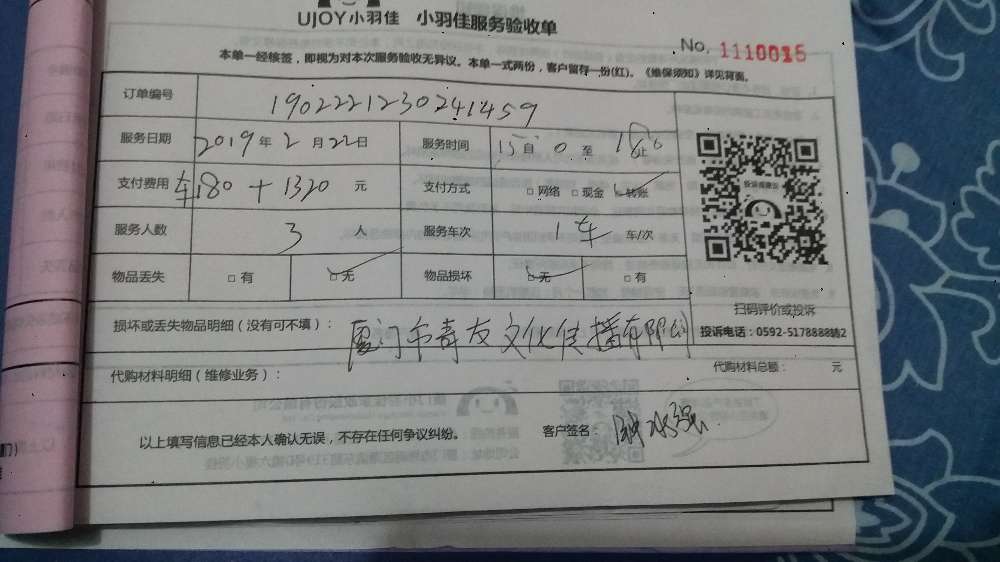 UJOY小羽佳 小羽佳服务验收单
No. 1110035
本单一经核签，即视为对本次服务验收无异议。本单一式两份，客户留存一份(红)。《维保须知》详见背面。
订单编号 1902221230241459
服务日期 2019年2月22日 服务时间 15自0至18止
支付费用 车180+1320元 支付方式 □网络 □现金 ☑转账
服务人数 3人 服务车次 1车 车/次
物品丢失 □有 ☑无 物品损坏 ☑无 □有
投诉或建议
扫码评价或投诉
投诉电话：0592-5178888转2
损坏或丢失物品明细（没有可不填）： 厦门市青友文化传播有限公司
代购材料明细（维修业务）： 代购材料总额： 元
以上填写信息已经本人确认无误，不存在任何争议纠纷。 客户签名：